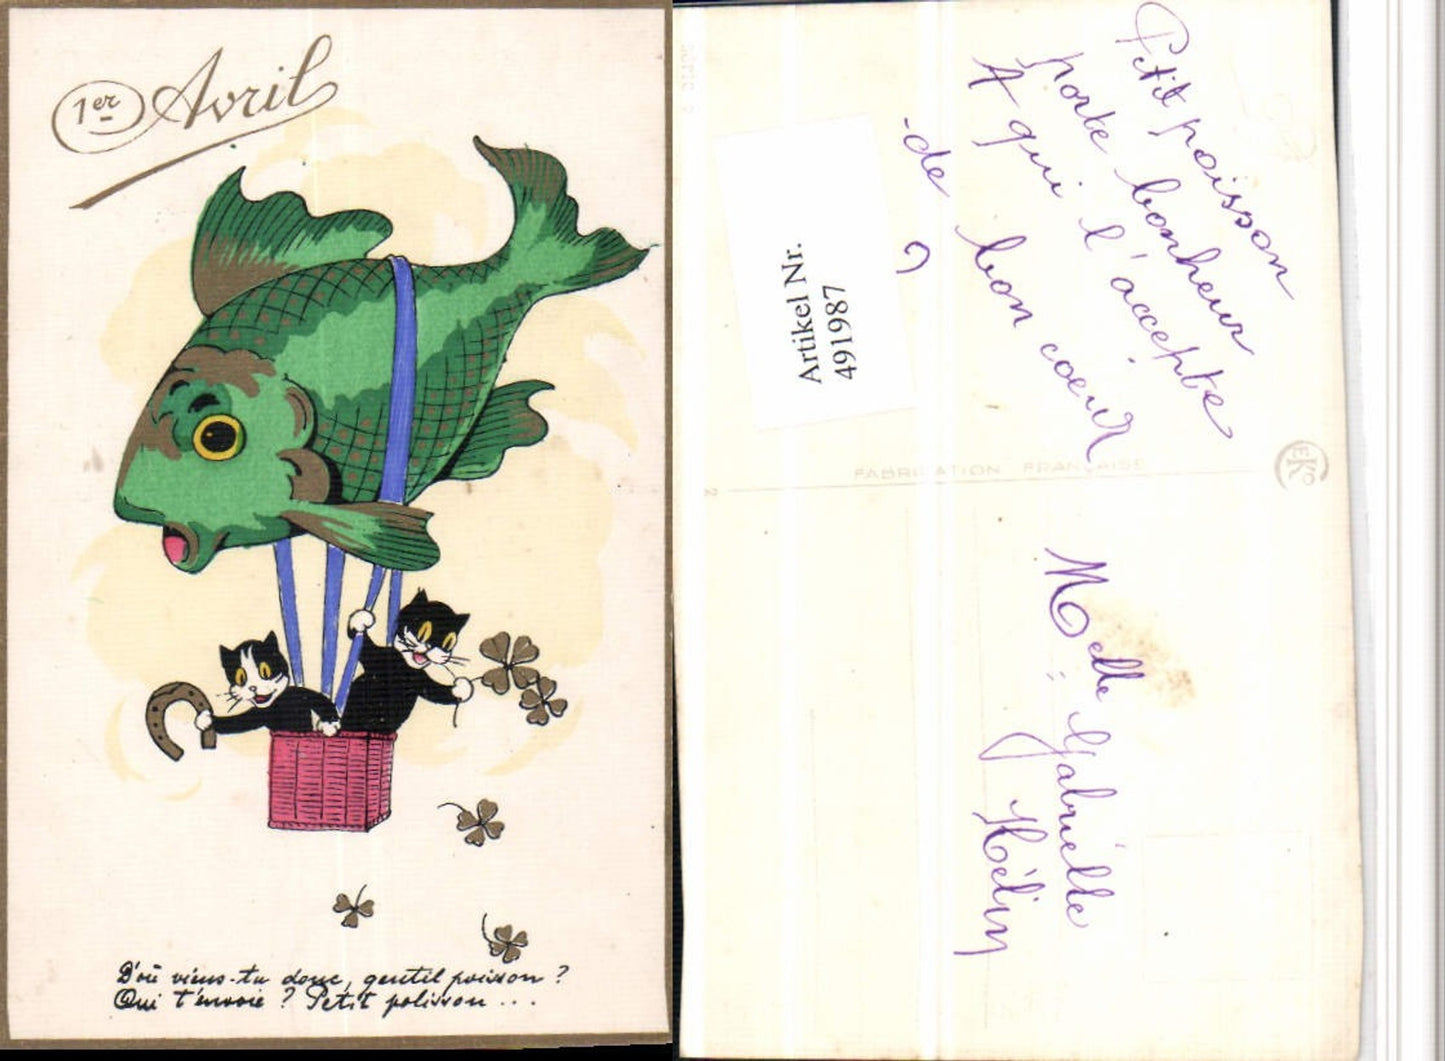 1er Avril
D'où viens-tu donc, gentil poisson ?
Qui t'envoie ? Petit polisson ...
Petit poisson
porte bonheur
A qui l'accepte
de bon coeur
?
Artikel Nr.
491987
FABRICATION FRANÇAISE
EKO
2
Melle Gabrielle
Hélin